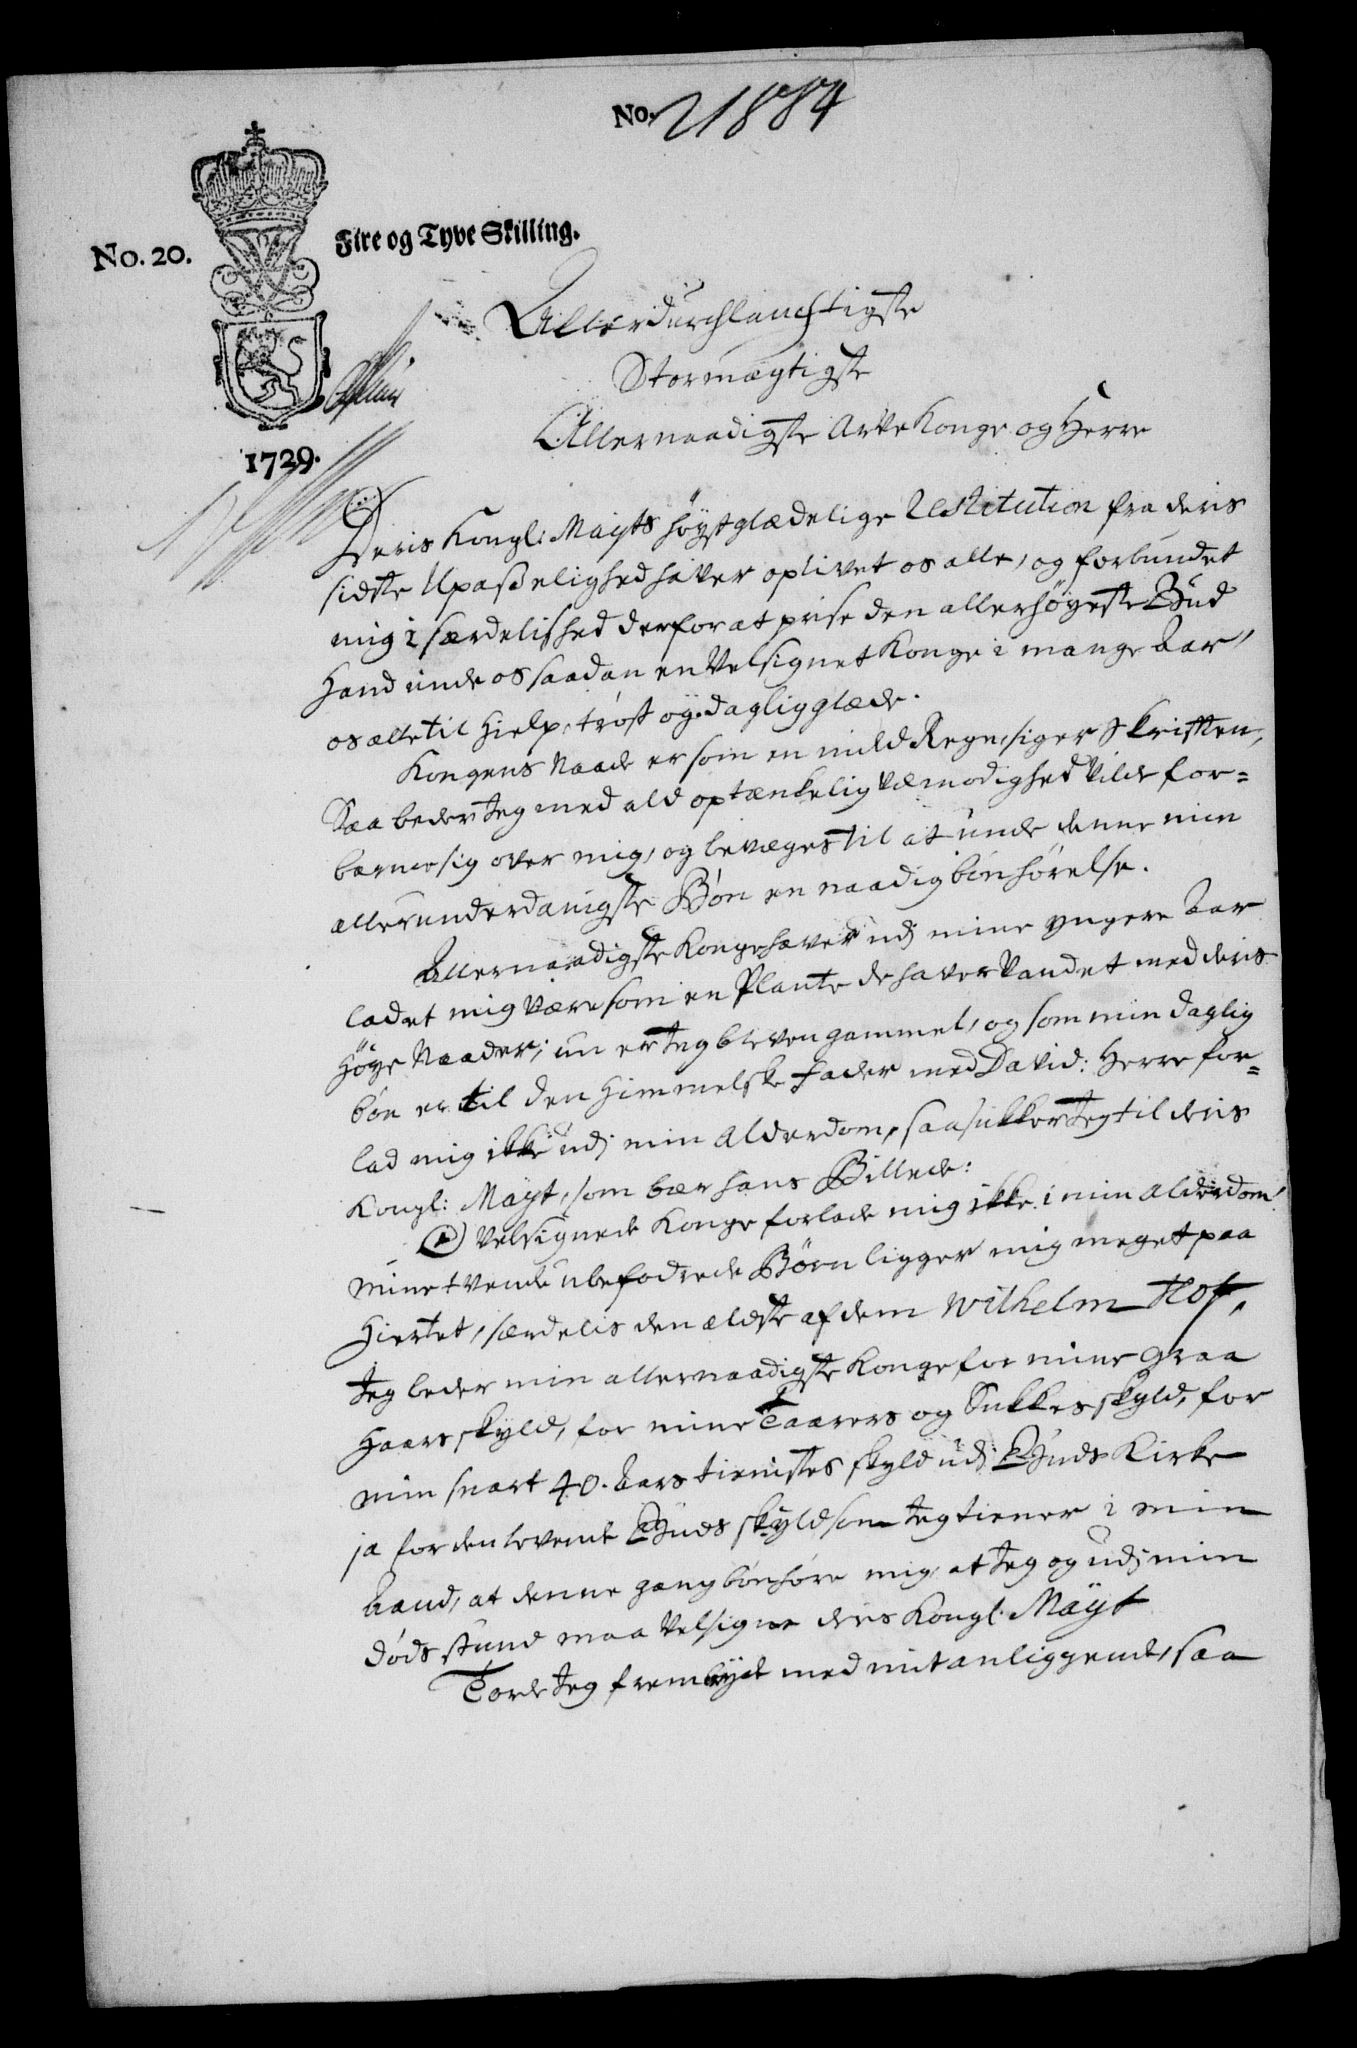 No. 21884
No. 20.
Fire og Tyve Skilling.
1729.
Allerdurchlauchtigste
Stormægtigste
Allernaadigste Arve Konge og Herre
Deris Kongl: Mayts höystglædelige Restitution fra deris
sidste Upaßelighed haver oplivet os alle, og forbundet
mig i særdelished derfor at prise den allerhöyeste Gud
Hand unde os saadan en Velsignet Konge i mange Aar,
os alle til Hielp, tröst og daglig glæde.
Kongens Naade er som en mild Regn, siger Skriften,
Saa beder Jeg med ald optænkelig Vemodighed Vilde for=
barme sig over mig, og bevæges til at unde denne min
allerunderdanigste Bön en naadig bönhörelse.
Allernaadigste Konge haver udj mine yngere Aar
ladet mig være som en Plante de haver Vandet med deris
Höye Naader; nu er Jeg bleven gammel, og som min daglig
bön er til den Himmelske Fader med David: Herre for=
lad mig ikke udj min Alderdom, saa sukker Jeg til deris
Kongl: Mayt, som bær hans Billede:
O Velsignede Konge forlade mig ikke i min Alderdom!
Mine tvende ubefodrede Börn ligger mig meget paa
Hiertet, særdelis den ældste af dem Wilhelm Hof,
Jeg beder min allernaadigste Konge for mine Graa
Haars skyld, for mine Taarers og Sukkes skyld, for
min snart 40. Aars tienistes skyld udj Guds Kirke
ja for den levende Guds skyld som Jeg tiener i min
Aand, at denne gang bönhöre mig, at Jeg og udj min
döds stund maa Velsigne deris Kongl. Mayt
Torde Jeg frembyde med mit anliggende, saa